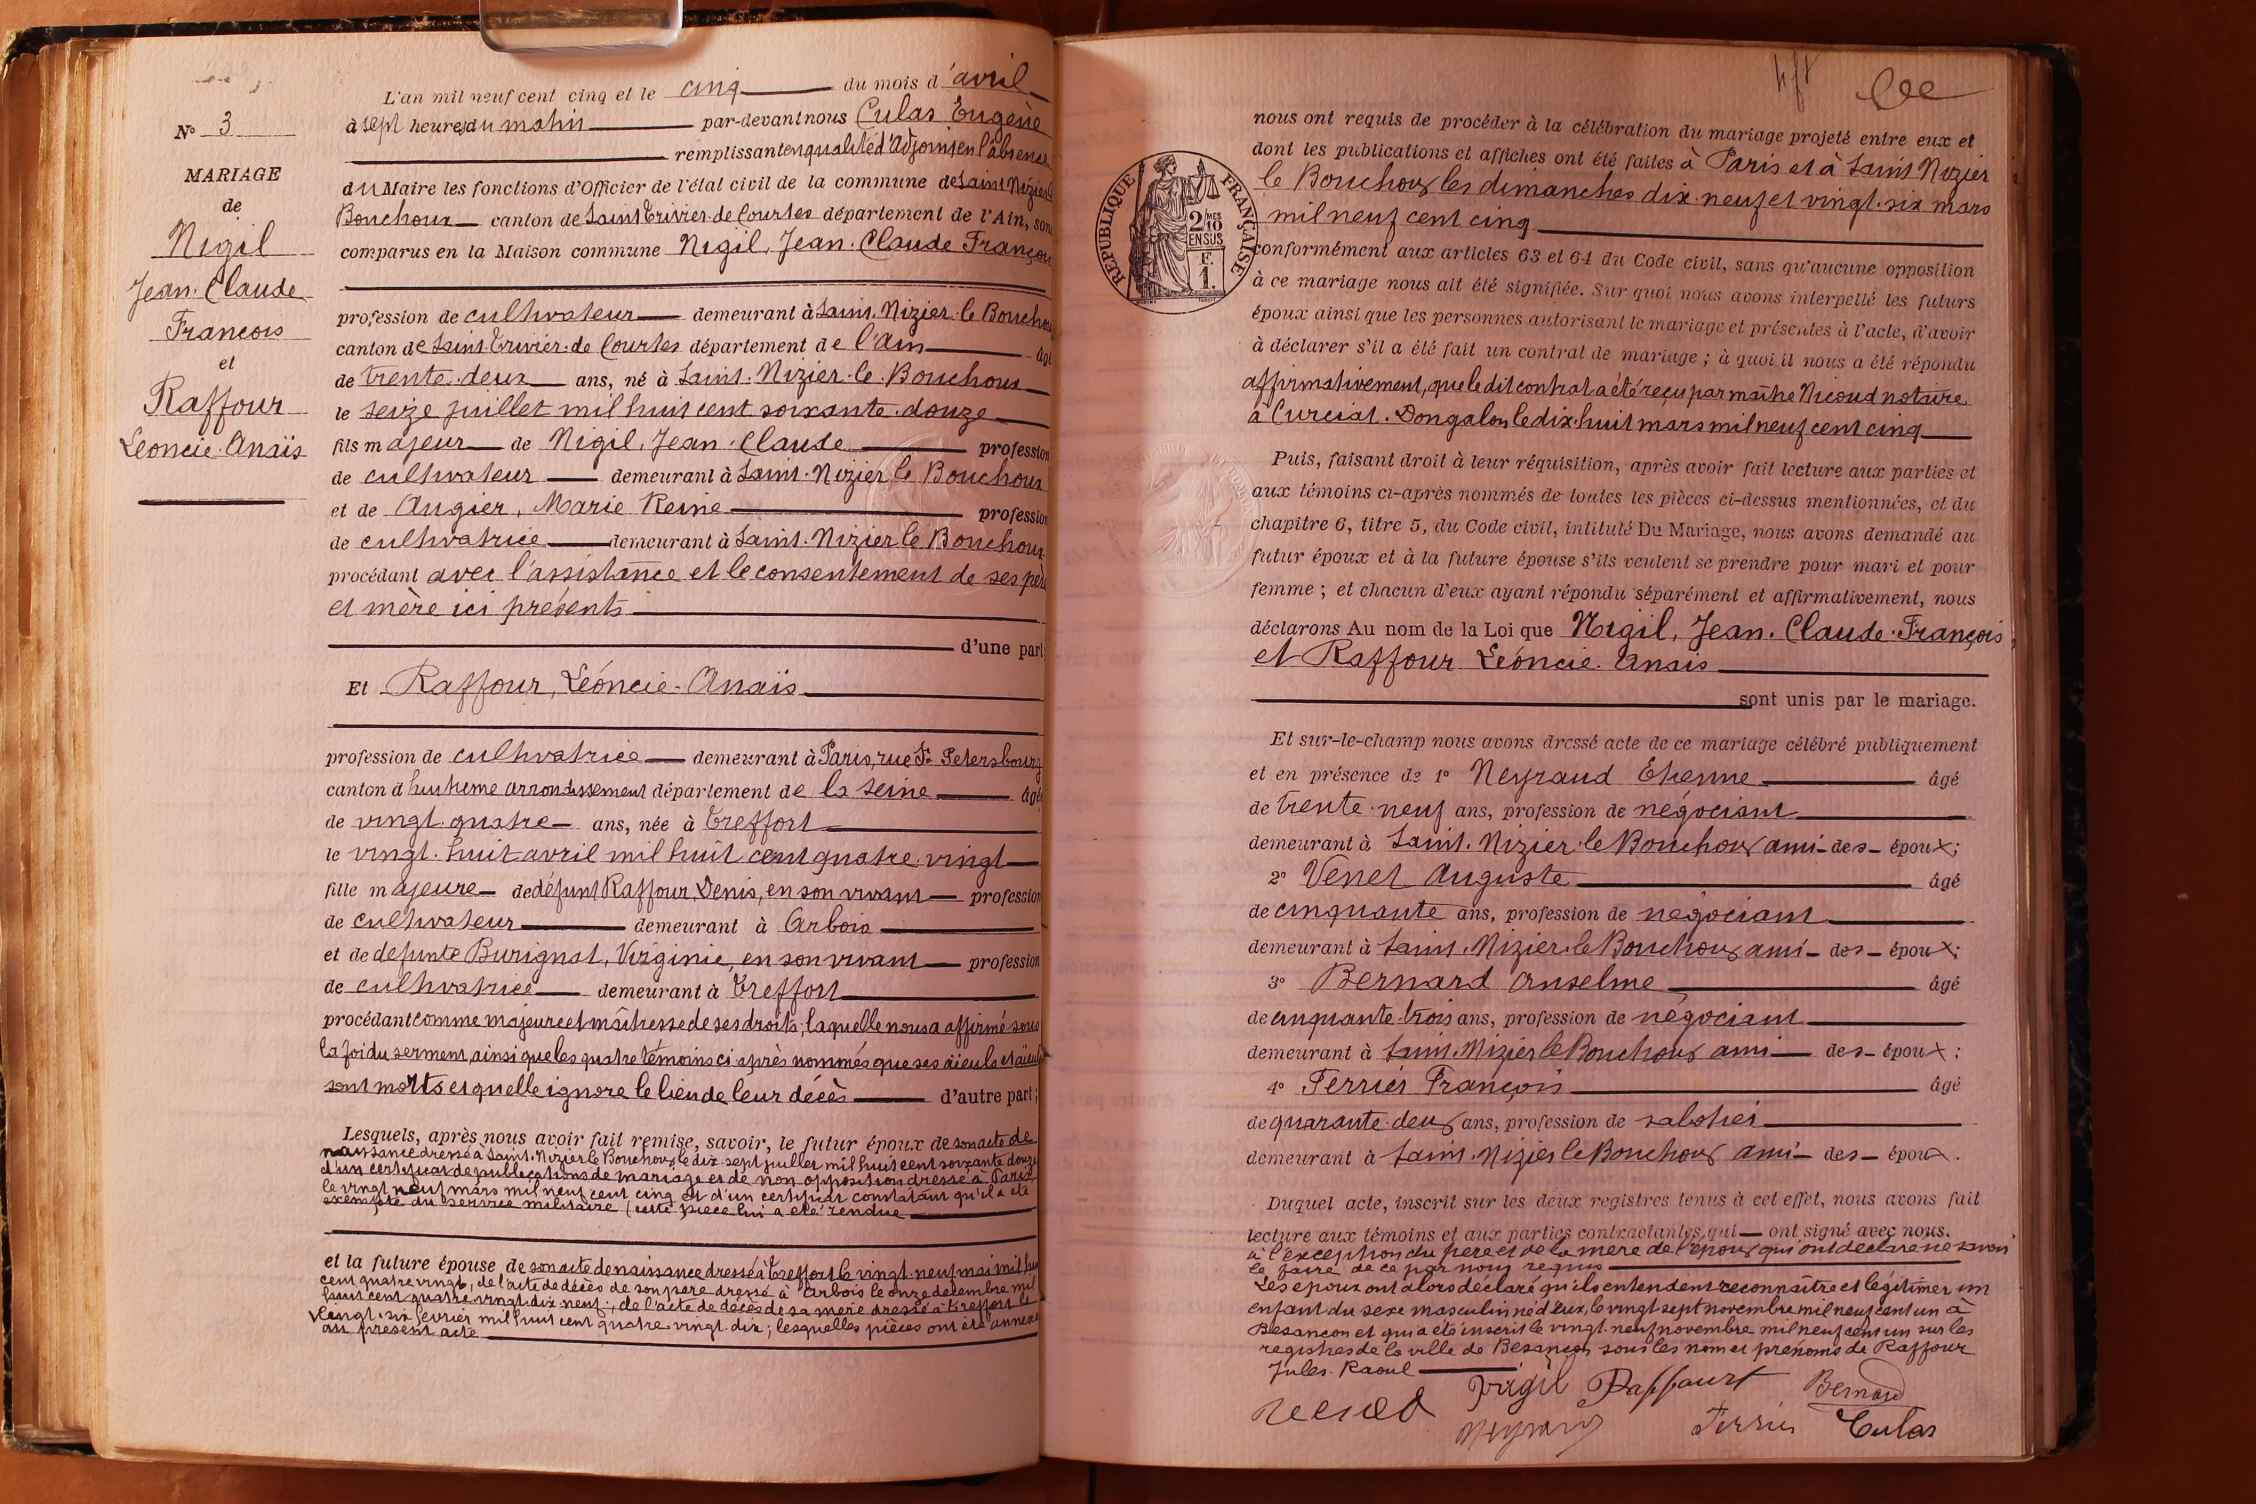 L'an mil neuf cent cinq et le cinq du mois d'avril
à sept heures du matin par-devant nous Culas Eugène
remplissant en qualité d'Adjoint en l'absence
du Maire les fonctions d'Officier de l'état civil de la commune de Saint Nizier le
Bouchoux canton de Saint Trivier de Courtes département de l'Ain, sont
comparus en la Maison commune Nigil, Jean-Claude François
profession de cultivateur demeurant à Saint-Nizier-le Bouchoux
canton de Saint-Trivier-de Courtes département de l'Ain âgé
de trente-deux ans, né à Saint-Nizier-le-Bouchoux
le seize juillet mil huit cent soixante-douze
fils majeur de Nigil, Jean-Claude profession
de cultivateur demeurant à Saint-Nizier le Bouchoux
et de Augier, Marie Reine profession
de cultivatrice demeurant à Saint-Nizier le Bouchoux
procédant avec l'assistance et le consentement de ses père
et mère ici présents
d'une part
Et Raffour, Léoncie-Anaïs
profession de cultivatrice demeurant à Paris, rue St Petersbourg
canton d huitième arrondissement département de la Seine âgée
de vingt-quatre ans, née à Treffort
le vingt-huit avril mil huit cent quatre-vingt
fille majeure de défunt Raffour, Denis, en son vivant profession
de cultivateur demeurant à Arbois
et de defunte Burignat, Virginie, en son vivant profession
de cultivatrice demeurant à Treffort
procédant comme majeure et maîtresse de ses droits; laquelle nous a affirmé sous
la foi du serment, ainsi que les quatre témoins ci après nommés que ses aïeuls et aïeules
sont morts et quelle ignore le lieu de leur décès d'autre part;
Lesquels, après nous avoir fait remise, savoir, le futur époux de son acte de
naissance dressé à Saint-Nizier le Bouchoux le dix-sept juillet mil huit cent soixante douze
d'un certificat de publications de mariage et de non opposition dressé à Paris
le vingt neuf mars mil neuf cent cinq et d'un certificat constatant qu'il a été
exempté du service militaire (cette pièce lui a été rendue
et la future épouse de son acte de naissance dressé à Treffort le vingt-neuf mai mil huit
cent quatre vingt, de l'acte de décès de son père dressé à Arbois le onze decembre mil
huit cent quatre vingt-dix neuf, de l'acte de décès de sa mère dressé à Treffort le
vingt-six fevrier mil huit cent quatre vingt-dix; lesquelles pièces ont été annexées
au présent acte
N° 3
MARIAGE
de
Nigil
Jean-Claude
François
et
Raffour
Léoncie-Anaïs
nous ont requis de procéder à la célébration du mariage projeté entre eux et
dont les publications et affiches ont été faites à Paris et à Saint Nizier
le Bouchoux les dimanches dix-neuf et vingt-six mars
mil neuf cent cinq
conformément aux articles 63 et 64 du Code civil, sans qu'aucune opposition
à ce mariage nous ait été signifiée. Sur quoi nous avons interpellé les futurs
époux ainsi que les personnes autorisant le mariage et présentes à l'acte, d'avoir
à déclarer s'il a été fait un contrat de mariage; à quoi il nous a été répondu
affirmativement, que le dit contrat a été reçu par maître Nicoud notaire
à Curciat-Dongalon le dix-huit mars mil neuf cent cinq
Puis, faisant droit à leur réquisition, après avoir fait lecture aux parties et
aux témoins ci-après nommés de toutes les pièces ci-dessus mentionnées, et du
chapitre 6, titre 5, du Code civil, intitulé Du Mariage, nous avons demandé au
futur époux et à la future épouse s'ils veulent se prendre pour mari et pour
femme; et chacun d'eux ayant répondu séparément et affirmativement, nous
déclarons Au nom de la Loi que Nigil, Jean-Claude-François
et Raffour Léoncie-Anaïs
sont unis par le mariage.
Et sur-le-champ nous avons dressé acte de ce mariage célébré publiquement
et en présence de 1° Neyraud Etienne âgé
de trente-neuf ans, profession de négociant
demeurant à Saint-Nizier-le Bouchoux ami des époux;
2° Venet Auguste âgé
de cinquante ans, profession de négociant
demeurant à Saint-Nizier-le Bouchoux ami des époux;
3° Bernard Anselme âgé
de cinquante-trois ans, profession de négociant
demeurant à Saint-Nizier le Bouchoux ami des époux;
4° Ferrier François âgé
de quarante-deux ans, profession de sabotier
demeurant à Saint-Nizier le Bouchoux ami des époux.
Duquel acte, inscrit sur les deux registres tenus à cet effet, nous avons fait
lecture aux témoins et aux parties contractantes, qui ont signé avec nous.
à l'exception du père et de la mère de l'époux qui ont déclaré ne savoir
le faire de ce par nous requis
Les époux ont alors déclaré qu'ils entendent reconnaître et légitimer un
enfant du sexe masculin né d'eux, le vingt sept novembre mil neuf cent un à
Besançon et qui a été inscrit le vingt-neuf novembre mil neuf cent un sur les
registres de la ville de Besançon sous les nom et prénoms de Raffour
Jules-Raoul
Nigil Raffourt Bernard
Venet Neyraud Ferrier Culas
RÉPUBLIQUE FRANÇAISE
2/10MES
EN SUS
F.
1.